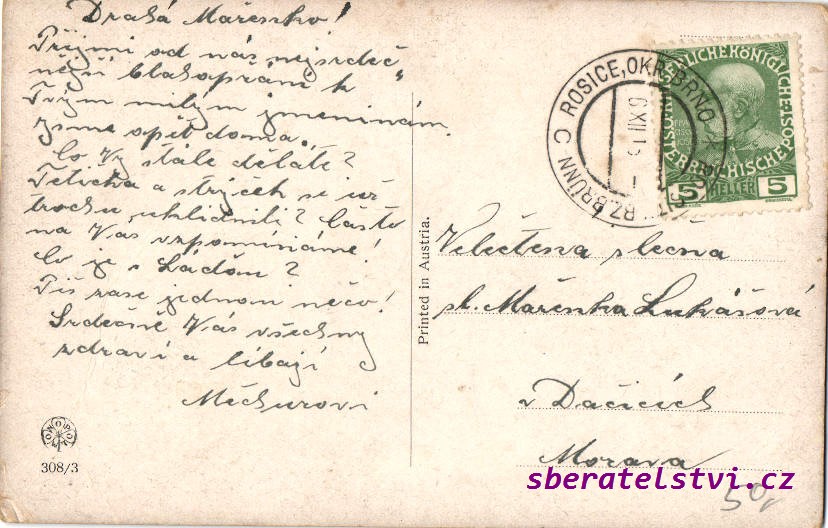 Drahá Mařenko!
Přijmi od nás nejsrdeč-
nější blahopřání k
Tvým milým jmeninám.
Jsme opět doma.
Co Vy stále děláte?
Tetička a strýček se už
trochu uklidnili? Často
na Vás vzpomínáme!
Co je s Láďou?
Piš zase jednou něco!
Srdečně Vás všechny
zdraví a líbají
Měchurovi
308/3
Printed in Austria.
ROSICE, OKR. BRNO
BZ. BRÜNN
XII
KAISERLICHE KÖNIGLICHE
ÖSTERREICHISCHE POST
5 HELLER 5
Velectěná slečna
sl. Mařenka Lukášová
v Dačicích
Morava
sberatelstvi.cz
50,